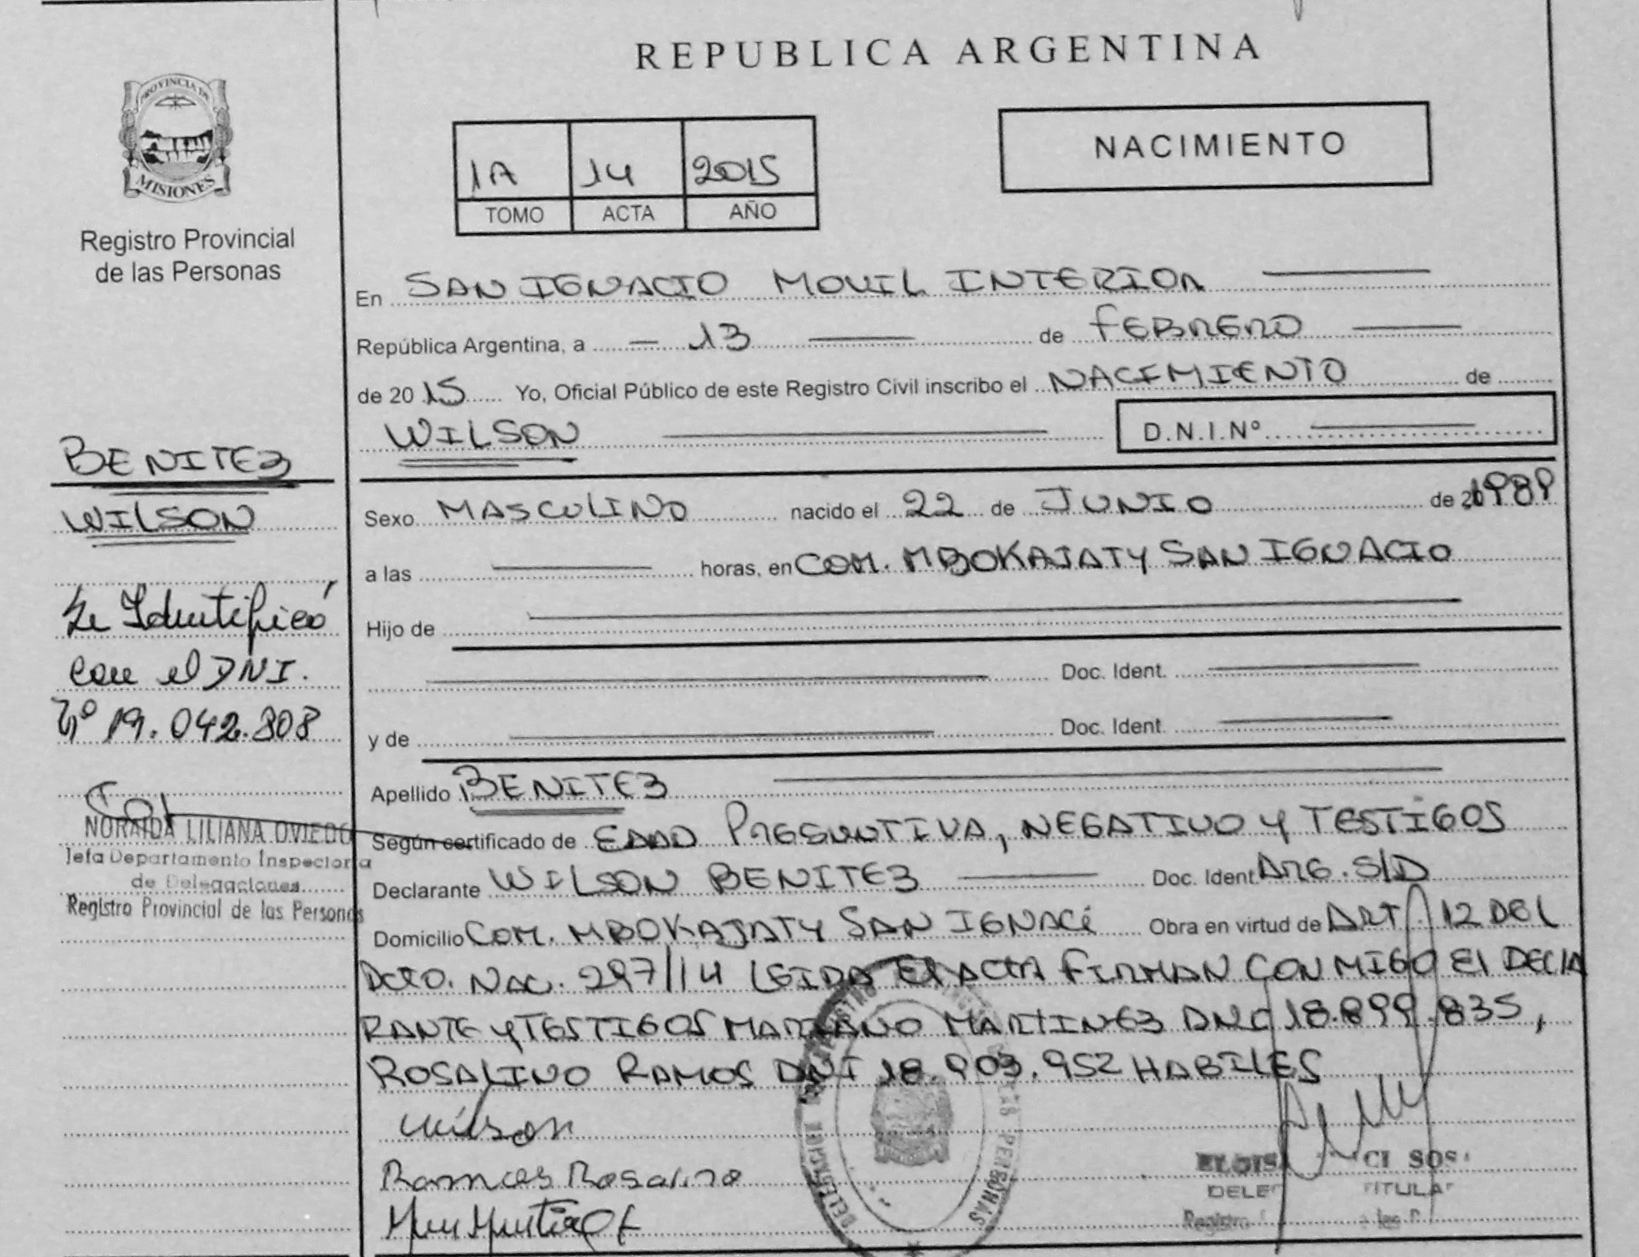 REPUBLICA ARGENTINA
PROVINCIA DE
MISIONES
Registro Provincial
de las Personas
1A 14 2015
TOMO ACTA AÑO
NACIMIENTO
En SAN IGNACIO MOVIL INTERIOR
República Argentina, a 13 de FEBRERO
de 2015 Yo, Oficial Público de este Registro Civil inscribo el NACIMIENTO de
WILSON D.N.I.Nº
BENITEZ
WILSON
Se Identificó
con el DNI.
Nº 19.042.808
NORAIDA LILIANA OVIEDO
Jefa Departamento Inspectoria
de Delegaciones
Registro Provincial de las Personas
Sexo MASCULINO nacido el 22 de JUNIO de 1989
a las horas, en COM. MBOKAJATY SAN IGNACIO
Hijo de
Doc. Ident.
y de Doc. Ident.
Apellido BENITEZ
Según certificado de EDAD PRESUNTIVA, NEGATIVO Y TESTIGOS
Declarante WILSON BENITEZ Doc. Ident ARG. S/D
Domicilio COM. MBOKAJATY SAN IGNACI Obra en virtud de ART. 12 DEL
DCTO. NAC. 297/14 LEIDA El ACTA FIRMAN CONMIGO El DECLA
RANTE Y TESTIGOS MARIANO MARTINEZ DNI 18.899.835,
ROSALINO RAMOS DNI 18.903.952 HABILES
Wilson
Ramos Rosalino
DELEGACION
PERSONAS
Registro